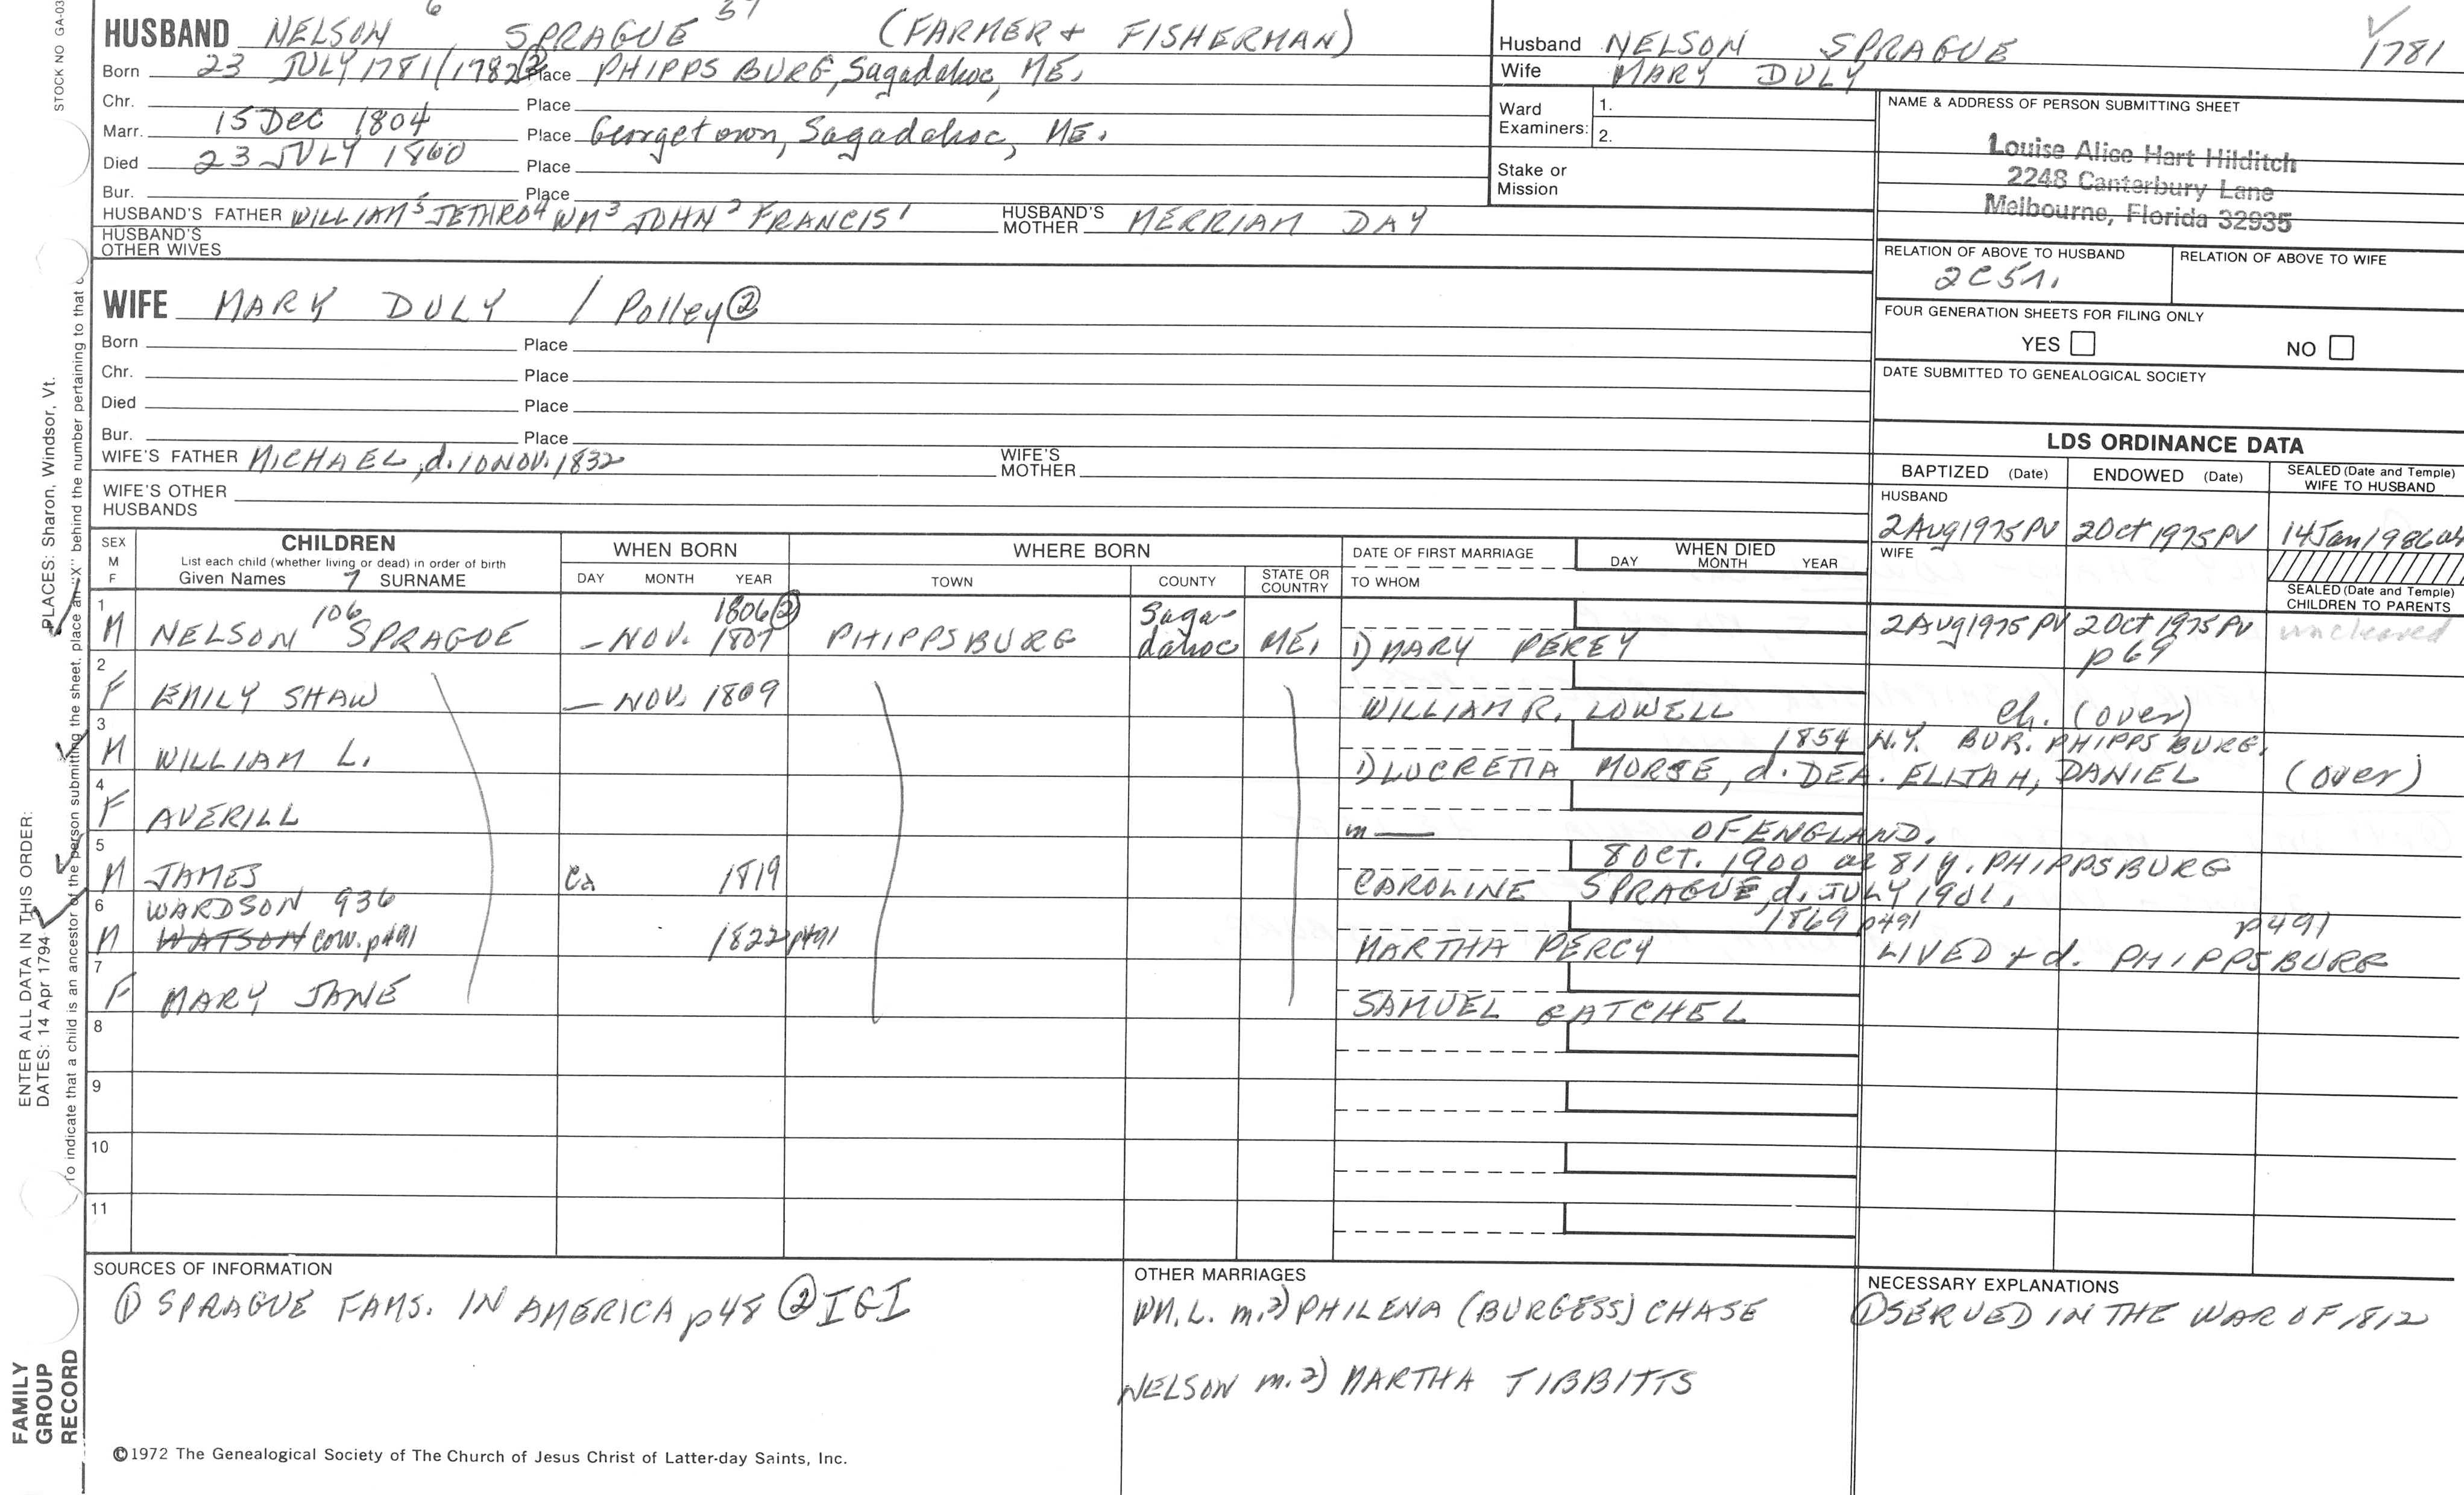 STOCK NO GA-03
6 57
HUSBAND NELSON SPRAGUE (FARMER + FISHERMAN)
Born 23 JULY 1781/1782② Place PHIPPSBURG, Sagadahoc, ME.
Chr. Place
Marr. 15 Dec 1804 Place Georgetown, Sagadahoc, ME.
Died 23 JULY 1860 Place
Bur. Place
HUSBAND'S FATHER WILLIAM⁵ JETHRO⁴ WM³ JOHN² FRANCIS¹ HUSBAND'S MOTHER MERRIAM DAY
HUSBAND'S OTHER WIVES
Husband NELSON SPRAGUE 1781
Wife MARY DULY
Ward Examiners: 1.
2.
Stake or Mission
NAME & ADDRESS OF PERSON SUBMITTING SHEET
Louise Alice Hart Hilditch
2248 Canterbury Lane
Melbourne, Florida 32935
RELATION OF ABOVE TO HUSBAND RELATION OF ABOVE TO WIFE
2C5r.
FOUR GENERATION SHEETS FOR FILING ONLY
YES NO
DATE SUBMITTED TO GENEALOGICAL SOCIETY
WIFE MARY DULY / Polley②
Born Place
Chr. Place
Died Place
Bur. Place
WIFE'S FATHER MICHAEL, d. 10 NOV. 1832 WIFE'S MOTHER
WIFE'S OTHER HUSBANDS
LDS ORDINANCE DATA
BAPTIZED (Date) ENDOWED (Date) SEALED (Date and Temple) WIFE TO HUSBAND
HUSBAND
2Aug1975PV 2Oct1975PV 14Jan1986
WIFE
SEALED (Date and Temple) CHILDREN TO PARENTS
SEX M F
CHILDREN
List each child (whether living or dead) in order of birth
Given Names 7 SURNAME
WHEN BORN
DAY MONTH YEAR
WHERE BORN
TOWN COUNTY STATE OR COUNTRY
DATE OF FIRST MARRIAGE
TO WHOM
WHEN DIED
DAY MONTH YEAR
1 106 1806② Saga-
M NELSON SPRAGUE – NOV. 1807 PHIPPSBURG dahoc ME. 1) MARY PERCY 2Aug1975PV 2Oct1975PV uncleared
p69
2
F EMILY SHAW – NOV. 1809 WILLIAM R. LOWELL ch. (over)
3 1854 N.Y. BUR. PHIPPSBURG.
M WILLIAM L. 1) LUCRETIA MORSE, d. DEA. ELIJAH, DANIEL (over)
4
F AVERILL m — OF ENGLAND.
5 8 OCT. 1900 ae 81 y. PHIPPSBURG
M JAMES ca 1819 CAROLINE SPRAGUE, d. JULY 1901.
6 WARDSON 936 1869 p491 p491
M WATSON corr. p491 1822 p491 MARTHA PERCY LIVED + d. PHIPPSBURG
7
F MARY JANE SAMUEL GATCHEL
8
9
10
11
SOURCES OF INFORMATION
① SPRAGUE FAMS. IN AMERICA p48 ② IGI
OTHER MARRIAGES
WM. L. m. 2) PHILENA (BURGESS) CHASE
NELSON m. 2) MARTHA TIBBITTS
NECESSARY EXPLANATIONS
① SERVED IN THE WAR OF 1812
©1972 The Genealogical Society of The Church of Jesus Christ of Latter-day Saints, Inc.
FAMILY GROUP RECORD
ENTER ALL DATA IN THIS ORDER:
DATES: 14 Apr 1794
PLACES: Sharon, Windsor, Vt.
To indicate that a child is an ancestor of the person submitting the sheet, place an "X" behind the number pertaining to that c